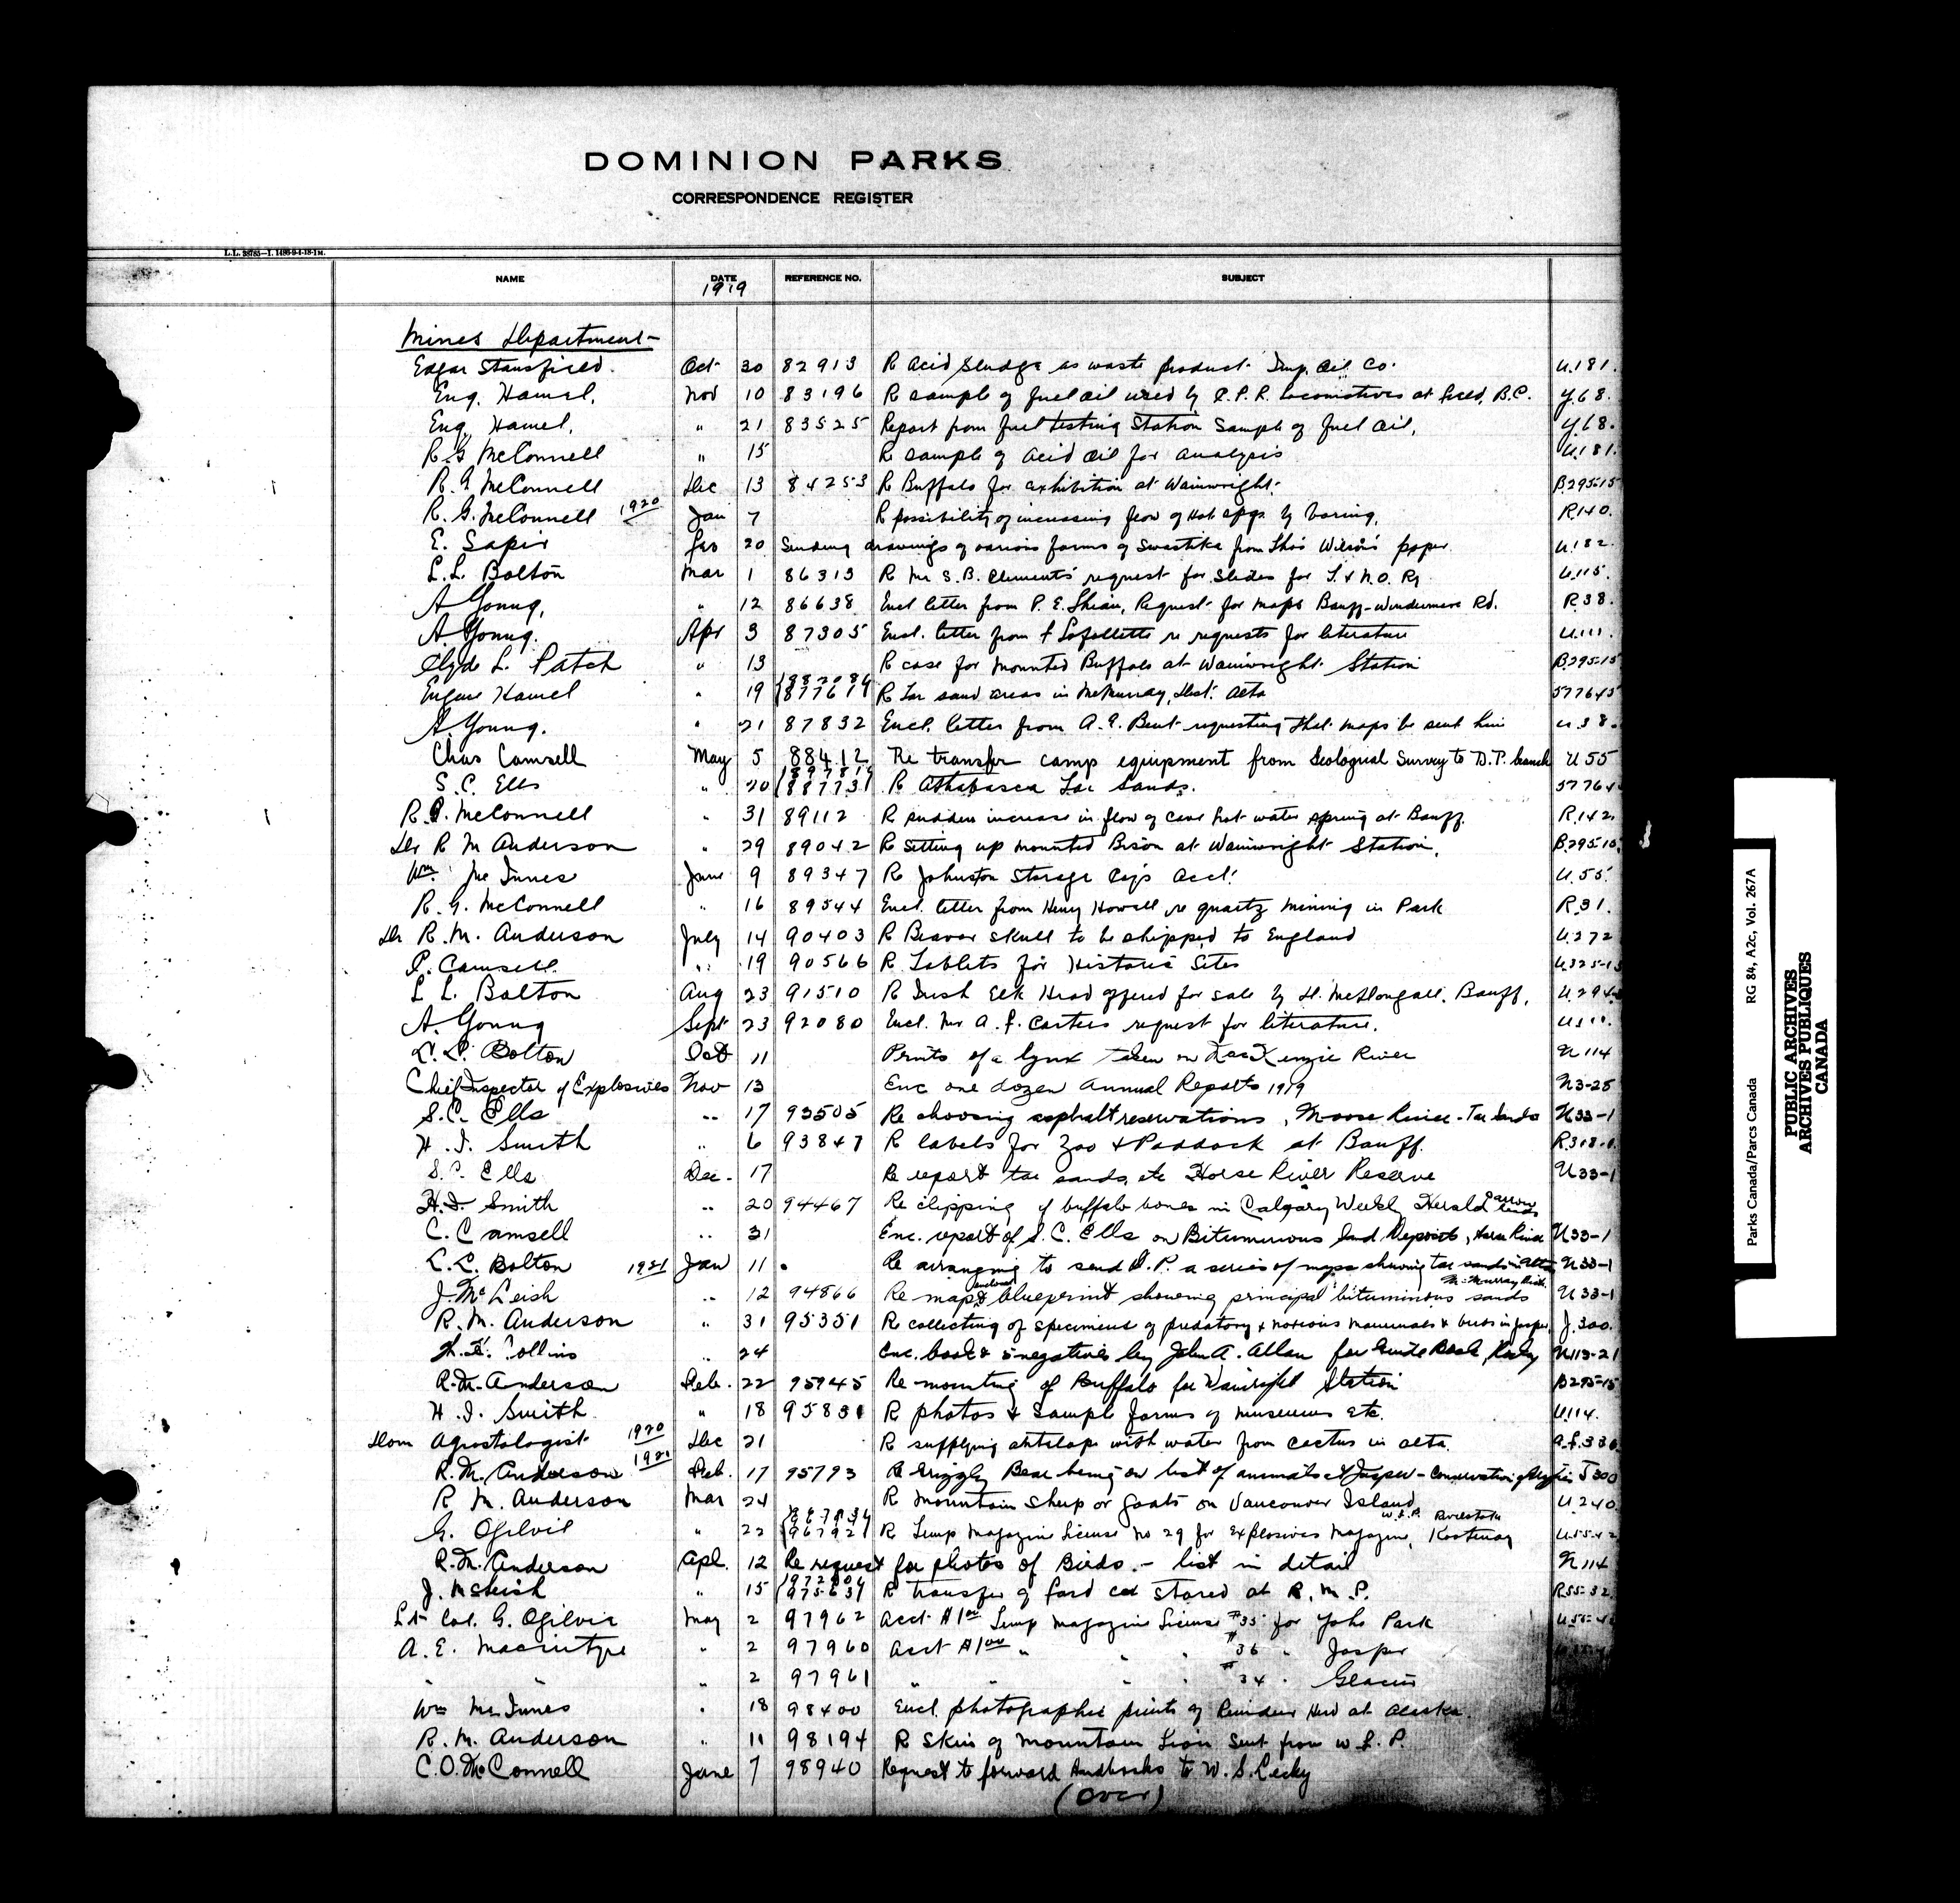 DOMINION PARKS
CORRESPONDENCE REGISTER
L.L. 38785—I. 1486-9-4-18-1M.
NAME DATE REFERENCE NO. SUBJECT
1919
Mines Department-
Edgar Stansfield. Oct 30 82913 R Acid Sludge as waste product Imp. Oil Co. U.181.
Eug. Hamel. Nov 10 83196 R sample of fuel oil used by C.P.R. Locomotives at Field, B.C. Y.68.
Eug. Hamel. " 21 83525 Report from fuel testing Station Sample of fuel oil. Y.68.
R.G McConnell " 15 R sample of Acid Oil for analysis U.181.
R.G McConnell Dec 13 84253 R Buffalo for exhibition at Wainwright. B.295-15
R.G. McConnell 1920 Jan 7 R possibility of increasing flow of Hot spgs by boring. R.140.
E. Sapir 20 Sending drawings of various forms of Swastika from Thos Wilson's paper U.182.
L.L. Bolton Mar 1 86313 R Mr S.B. Clement's request for slides for T. & N.O. Ry. U.115.
A Young, " 12 86638 Encl letter from P.E. Request for maps Banff-Windermere Rd. R.38.
A. Young. Apr 3 87305 Encl. letter from f Lafollette re requests for literature U.111.
Clyde L. Patch " 13 R case for mounted Buffalo at Wainwright Station B.295-15
Eugene Hamel " 19 R Tar sand areas in McMurray, Dist. Alta 577645
A. Young. " 21 87832 Encl. letter from A.E. Bent requesting that maps be sent him U.38.
Chas Camsell May 5 88412 Re transfer camp equipment from Geological Survey to D.P. branch U 55
S.C. Ells " 20 88773 R Athabasca Tar Sands. 5776
R.G. McConnell " 31 89112 R sudden increase in flow of cave hot water spring at Banff. R.142.
Dr R M Anderson " 29 89042 R Setting up mounted Bison at Wainwright Station. B.295-15
Wm McInnes June 9 89347 R Johnston Storage Coy's Acct. U.55.
R.G. McConnell " 16 89544 Encl. letter from Henry Howell re quartz mining in Park R.31.
Dr R.M. Anderson July 14 90403 R Beaver skull to be shipped to England U.272
C. Camsell. " 19 90566 R Tablets for Historic Sites U.325-13
L L. Bolton Aug 23 91510 R Irish Elk Head offered for sale by D. McDougall, Banff. U.294
A. Young Sept 23 92080 Encl. Mr A.f. Carters request for literature. U.111.
L.L. Bolton Oct 11 Prints of a lynx taken on MacKenzie River U 114
Chief Inspector of Explosives Nov 13 Enc one dozen Annual Reports 1919 U3-25
S.C. Ells " 17 93505 Re choosing asphalt reservations, Moose River - Tar Sands U33-1
H.I. Smith " 6 93847 R labels for Zoo & Paddock at Banff. R.318-1
S.C. Ells Dec. 17 Re report tar sands, etc Horse River Reserve U33-1
H.I. Smith " 20 94467 Re clipping of buffalo bones in Calgary Weekly Herald
C. Camsell " 31 Enc. report of S.C. Ells on Bituminous Sand Deposits, Horse River U33-1
L.L. Bolton 1921 Jan 11 Re arranging to send D.P. a series of maps showing tar sands in Alta U33-1
J. McLeish " 12 94866 Re map & enclosed blueprint showing principal bituminous sands McMurray Dist. U33-1
R.M. Anderson " 31 95351 Re collecting of specimens of predatory & noxious mammals & birds in Jasper. J.300.
Collins " 24 Enc. book & 5 negatives by John A. Allan for Guide Book, U113-21
R.M. Anderson Feb. 22 95945 Re mounting of Buffalo for Wainright Station B295-15
H.I. Smith " 18 95831 R photos & Sample forms of museums etc. U.114.
Dom Agrostologist 1920 Dec 21 R supplying antelope with water from cactus in alta.
R.M. Anderson 1921 Feb. 17 95793 Re Grizzly Bear being on list of animals at Jasper - J 300
R M. Anderson Mar 24 R Mountain Sheep or Goats on Vancouver Island U.240
G. Ogilvie " 22 96792 R Temp Magazine License No 29 for Explosives Magazine, Kootenay W.L.P. Revelstoke U.55-42
R.M. Anderson Apl. 12 Re request for photos of Birds. - list in detail U 114
J. McLeish " 15 97563 R transfer of ford car stored at R.M.P. R55-32
Lt Col. G. Ogilvie May 2 97962 Acct $1.00 Temp Magazine License #35 for Yoho Park
A.E. Macintyre " 2 97960 Acct $1.00 " " " #36 " Jasper
" " " 2 97961 " " " #34 " Glacier
Wm McInnes " 18 98400 Encl. photographic prints of Reindeer Herd at Alaska.
R.M. Anderson " 11 98194 R Skin of Mountain Lion Sent from W.L.P.
C.O. McConnell June 7 98940 Request to forward Handbooks to W.S. Lecky
(over)
Parks Canada/Parcs Canada RG 84, A2c, Vol. 267A
PUBLIC ARCHIVES
ARCHIVES PUBLIQUES
CANADA